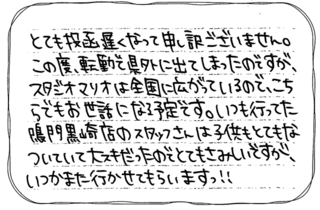 とても投函遅くなって申し訳ございません。
この度、転勤で県外に出てしまったのですが、
スタジオマリオは全国に広がっているので、こち
らでもお世話になる予定です。いつも行ってた
鳴門黒崎店のスタッフさんは子供もとてもな
ついていて大スキだったのでとてもさみしいですが、
いつかまた行かせてもらいますっ!!